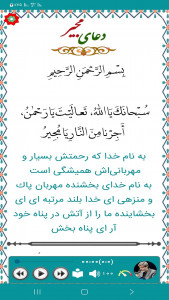 دعای مجیر
بِسْمِ الرَّحْمَنِ الرَّحِيمِ
سُبْحَانَكَ يَا اللَّهُ، تَعَالَيْتَ يَا رَحْمَنُ،
أَجِرْنَا مِنَ النَّارِ يَا مُجِيرُ
به نام خدا که رحمتش بسیار و
مهربانی‌اش همیشگی است
به نام خدای بخشنده مهربان پاك
و منزهی ای خدا بلند مرتبه ای ای
بخشاینده ما را از آتش در پناه خود
آر ای پناه بخش